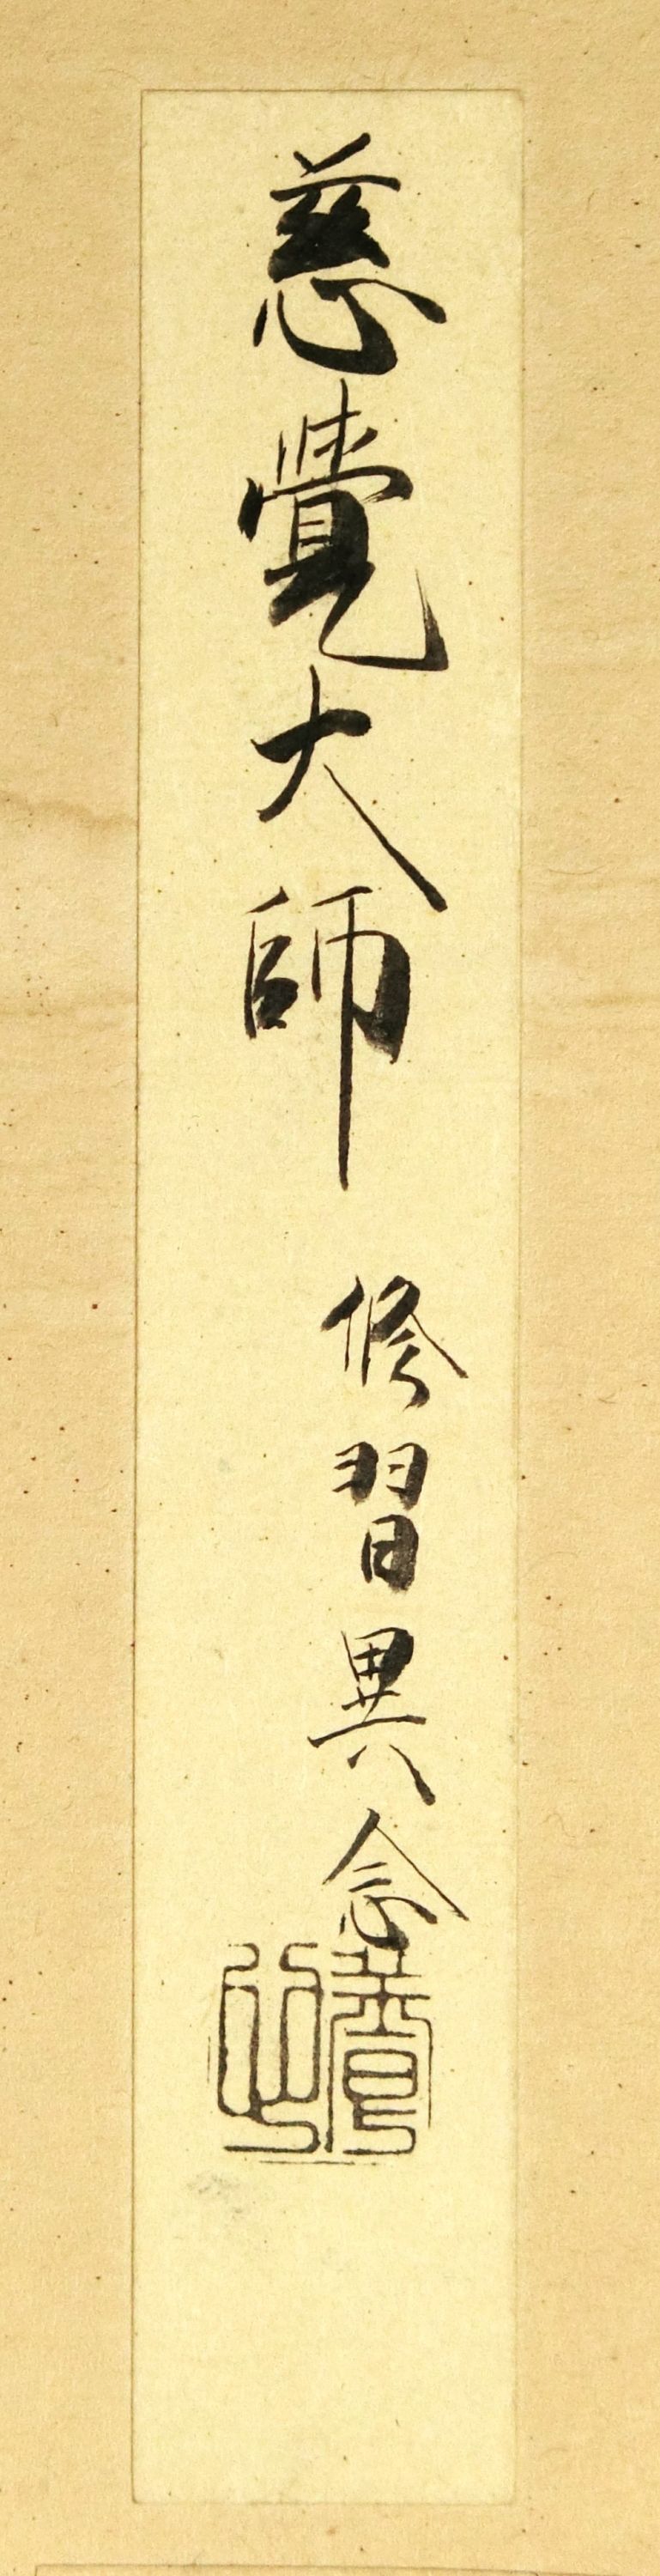 慈覺大師 修習異念